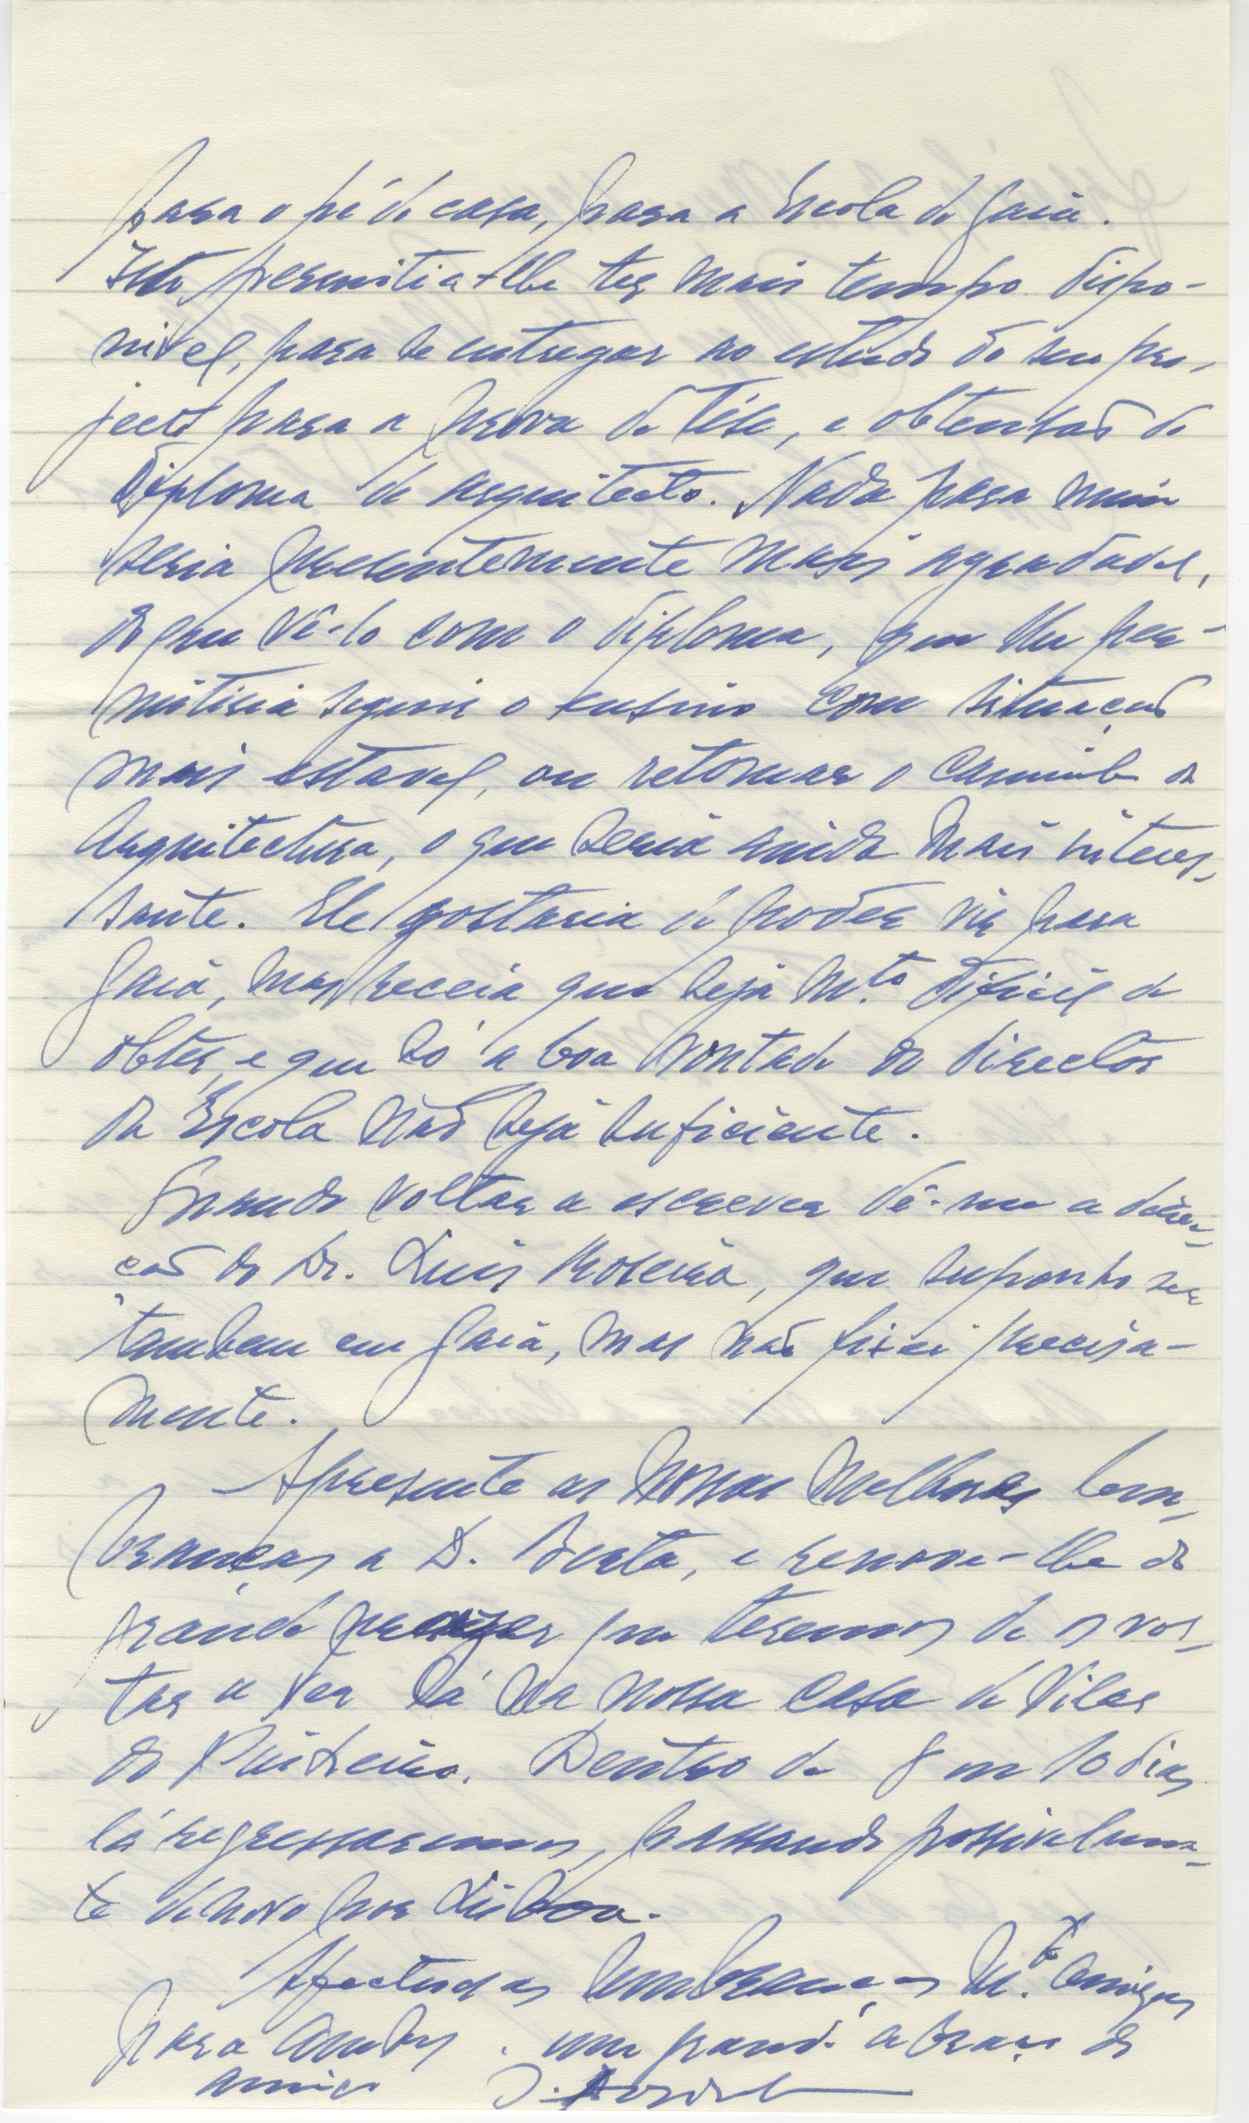 para o pé de casa, para a Escola de Gaia.
Isto permitia-lhe ter mais tempo dispo-
nivel, para se entregar ao estudo do seu pro-
jecto para a prova de tése, e obtensão do
Diploma de arquitecto. Nada para mim
seria presentemente mais agradavel,
do que vê-lo com o diploma, que lhe per-
mitiria seguir o ensino com situação
mais estavel, ou retomar o caminho da
Arquitectura, o que seria ainda mais interes-
sante. Ele gostaria de poder vir para
Gaia, mas receia que seja m.to dificil de
obter, e que só a boa vontade do director
da Escola não seja suficiente.
Quando voltar a escrever dê-me a direc-
ção do Dr. Luis Roseira, que suponho ser
tambem em Gaia, mas não fixei precisa-
mente.
Apresente as nossas melhores lem-
branças a D. Berta, e renove-lhe do
grande prazer que teremos de os vol-
tar a ver lá na nossa casa de Vilar
do Pinheiro. Dentro de 8 ou 10 dias
lá regressaremos, passando possivelmen-
te de novo por Lisboa.
Afectuosas lembranças m.to amigas
para ambos. um grande abraço do
amigo